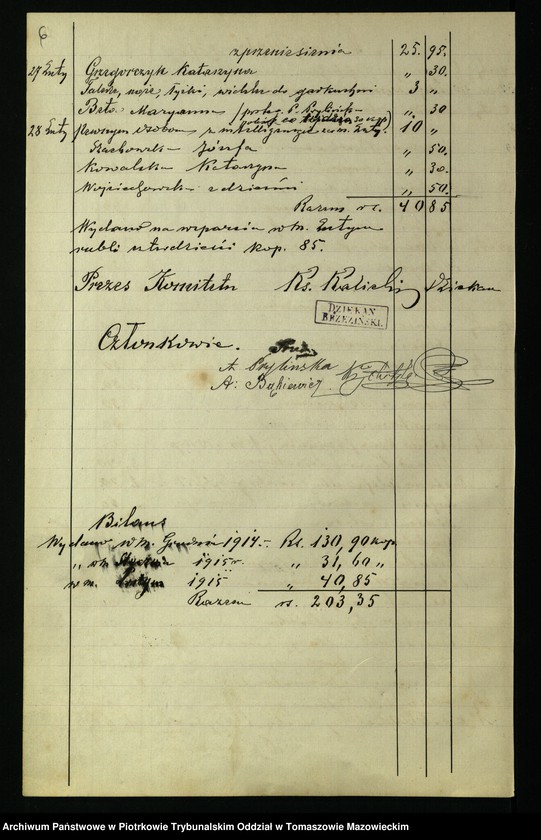 6
z przeniesienia 25. 95.
27 Luty Grzegorczyk Katarzyna „ 30.
Talerz, noże, łyżki, widelce do garkuchni 3 „
Maryanna „ 30
28 Luty Pewnym osobom z inteligencyi 10 „
Józefa „ 50.
Kowalska Katarzyna „ 30.
Wojciechowska z dziećmi „ 50.
Razem rs. 40 85
Wydano na wsparcia w m. Lutym
rubli czterdzieści kop. 85.
Prezes Komitetu Ks. Kaliski Dziekan
DZIEKAN
BRZEZIŃSKI.
Członkowie.
A. Prylińska
A. Bąkiewicz
Bilans
Wydano w m. Grudniu 1914 – Rs. 130,90 kop
„ w m. Styczniu 1915 r. „ 31,60 „
w m. Lutym 1915 „ 40,85
Razem rs. 203,35
Archiwum Państwowe w Piotrkowie Trybunalskim Oddział w Tomaszowie Mazowieckim